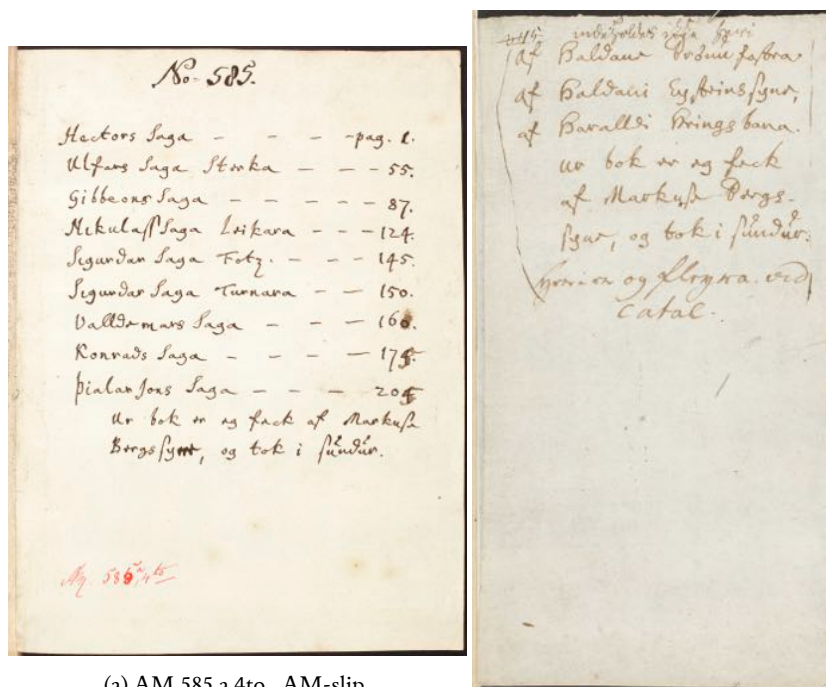 No. 585.
Hectors Saga – – – – pag. 1.
Ulfars Saga Sterka – – – 55.
Gibbeons Saga – – – – 87.
Nikulass Saga Leikara – – – 124.
Sigurdar Saga Fotz. – – – 145.
Sigurdar Saga Turnara – – 150.
Valldemars Saga – – – 160.
Konrads Saga – – – – 175.
Þialar Jons Saga – – – – 205
Ur bok er eg feck af Markuse
Bergssyne, og tok i sundur.
585 4to
(a) AM 585 a 4to, AM-slip
indeholdes icke heri
af Haldane Brönufostra
af Haldani Eysteinssyne,
af Haralldi Hringsbana.
ur bok er eg feck
af Markuse Bergs-
syne, og tok i sundur.
og fleyra vid
Catal.